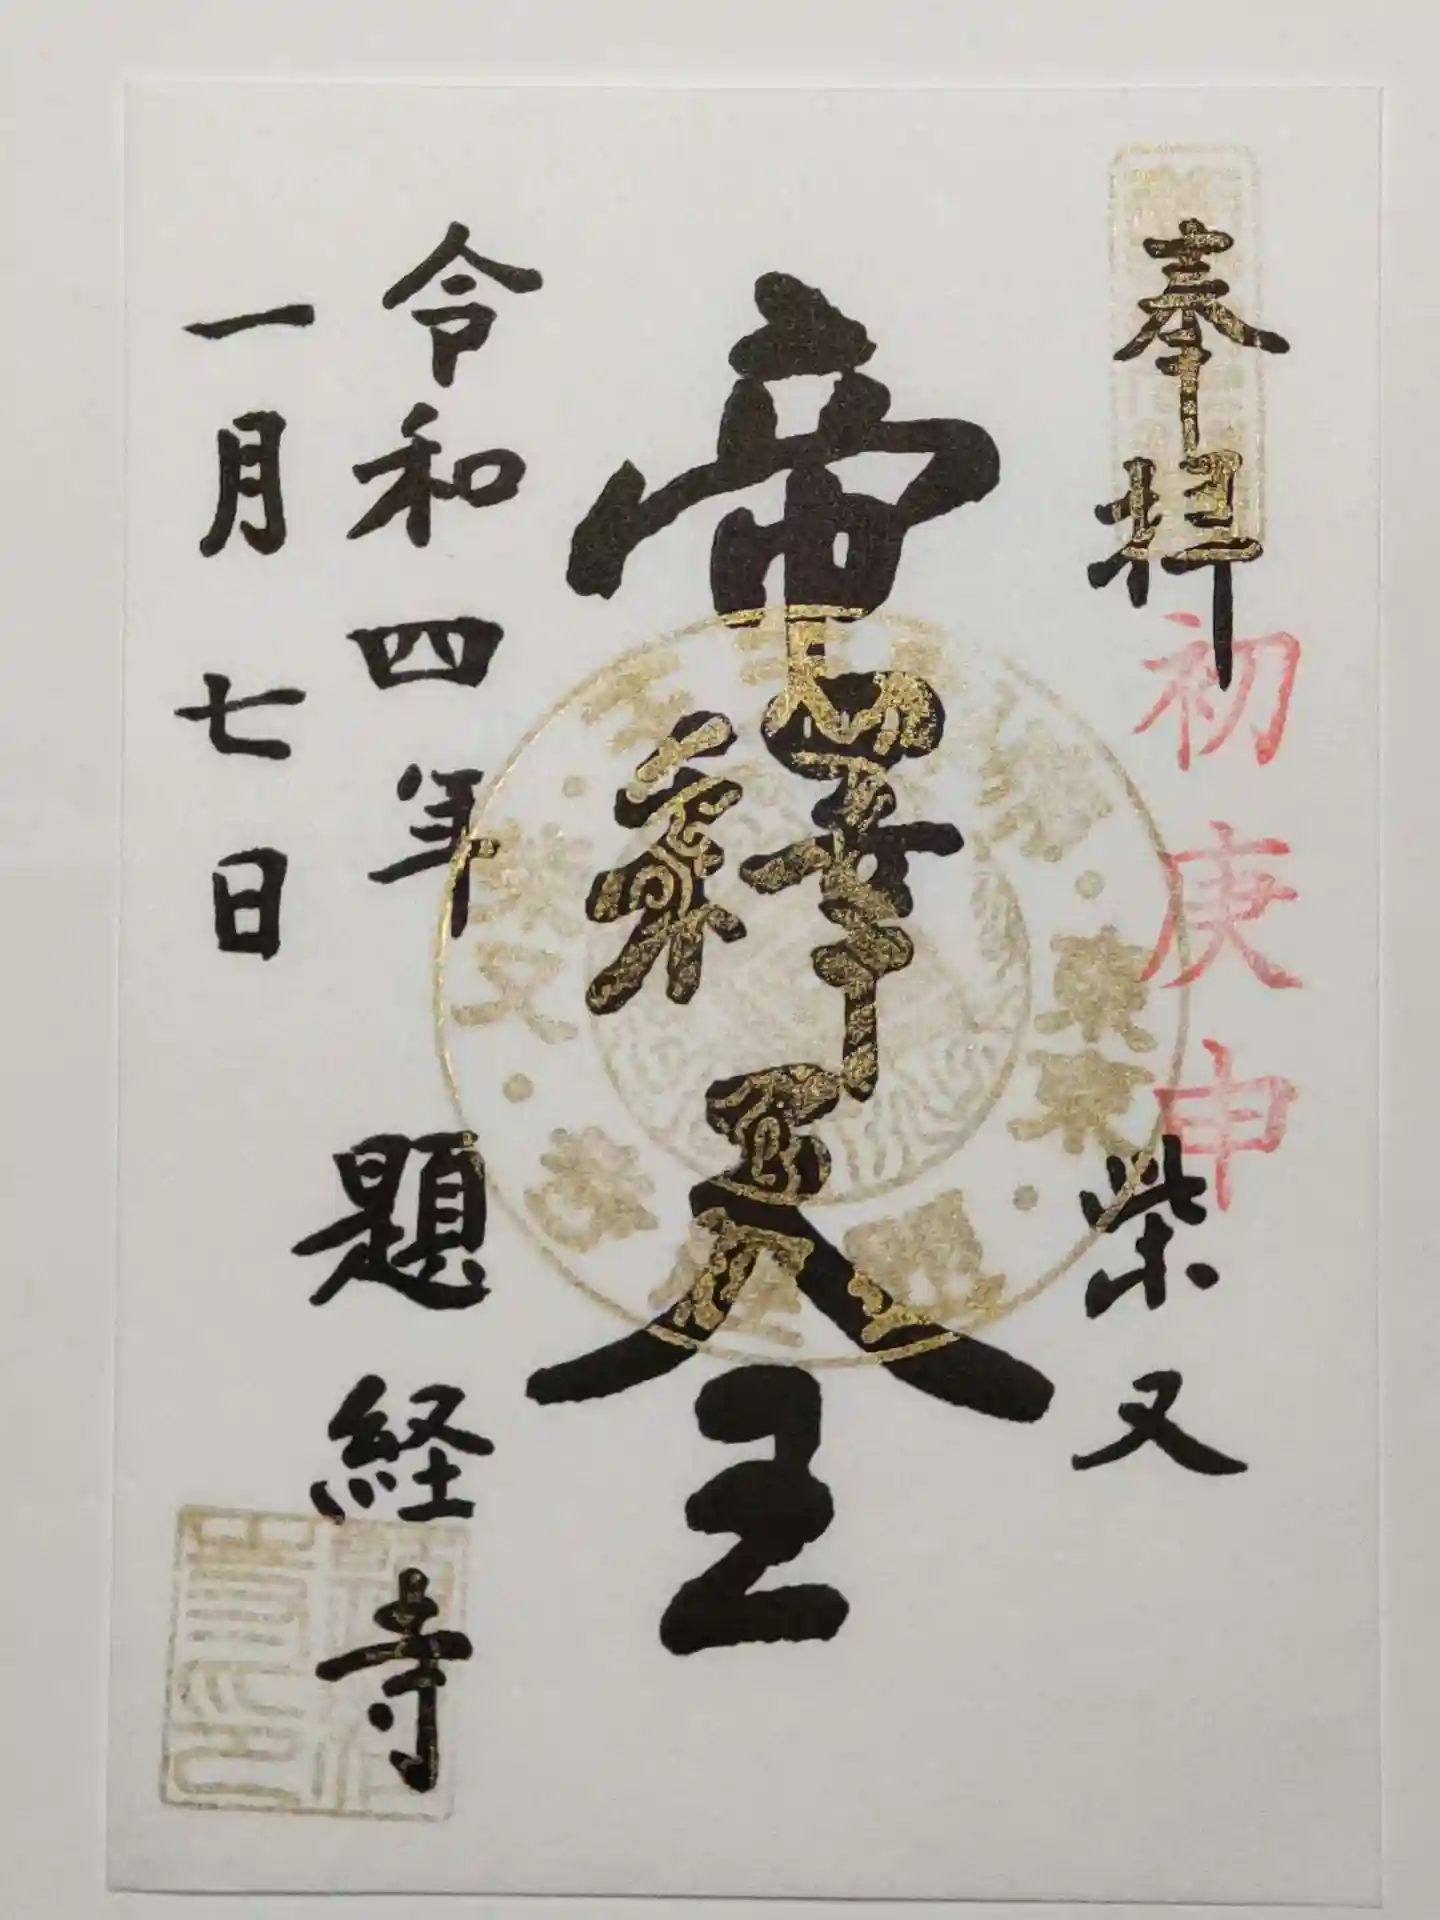 奉拝
初庚申
柴又
帝釈天王
令和四年
一月七日
題経寺